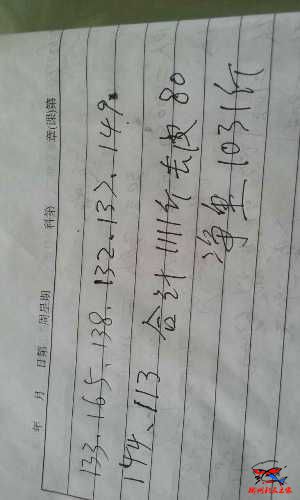 年 月 日第 周星期 科第 章(课)第
133、165、138、132、137、149。
144、113 合计1111斤去皮80
净重1031斤